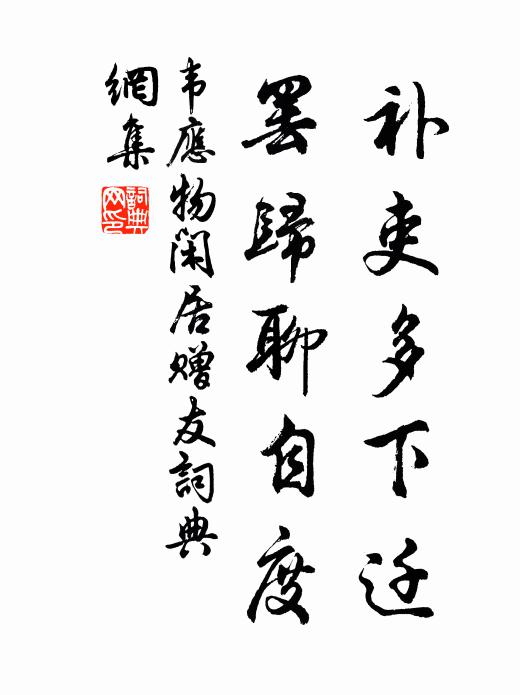 补吏多下迁
罢歸聊自度
韦應物闲居赠友詞典
網集
詞典
网印